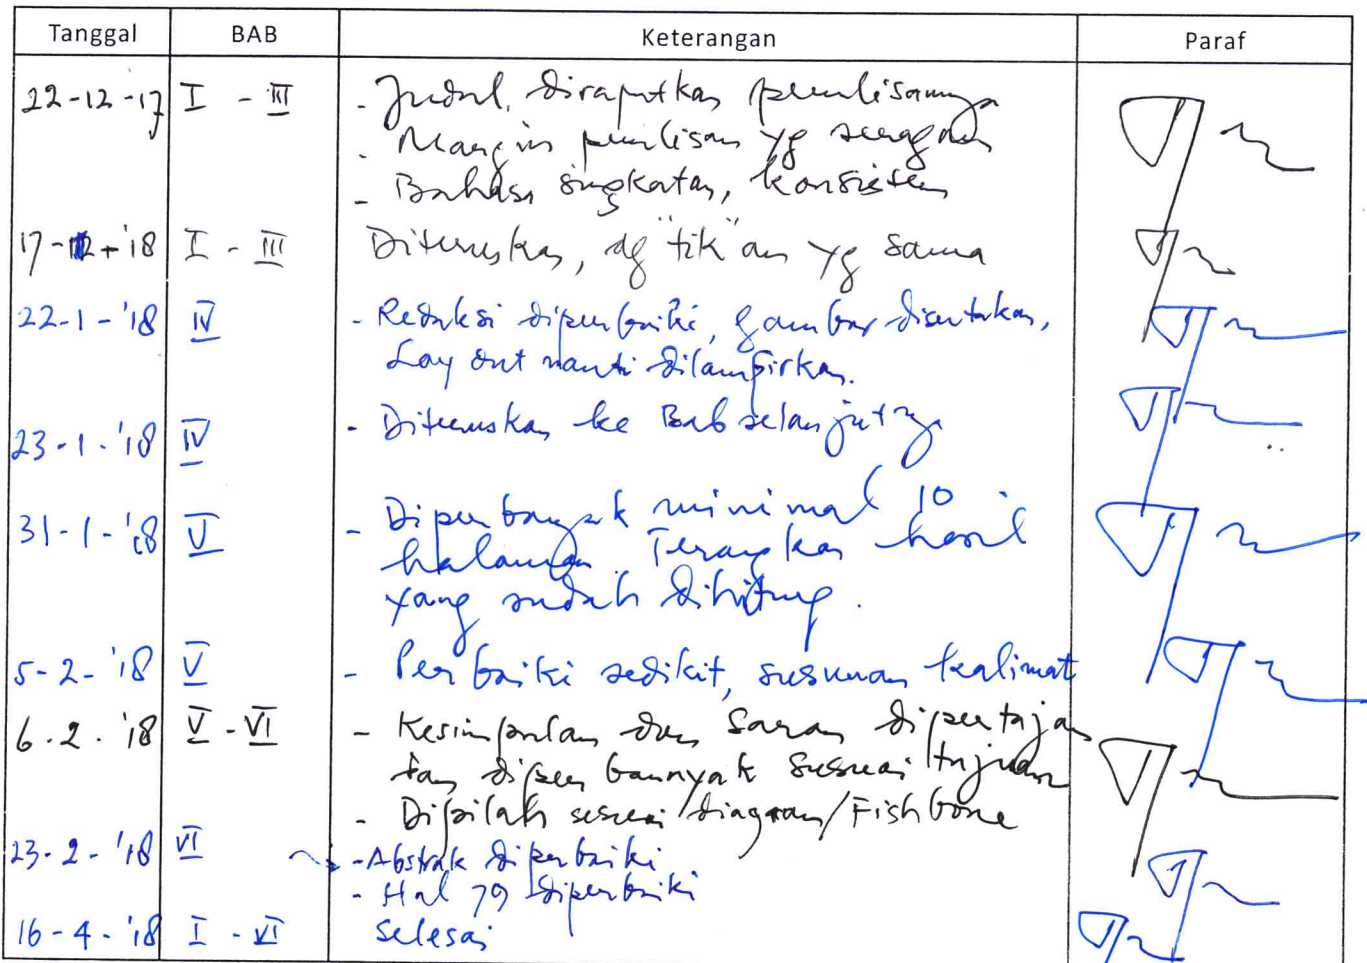 Tanggal BAB Keterangan Paraf
22-12-17 I - III - Judul, dirapikan penulisannya
- Margin penulisan yg seragam
- Bahasa singkatan, konsisten
17- -'18 I - III Diteruskan, dg "tik"an yg sama
22-1-'18 IV - Redaksi diperbaiki, gambar disertakan,
Lay out nanti dilampirkan.
23-1-'18 IV - Diteruskan ke Bab selanjutnya
31-1-'18 V - Diperbanyak minimal 10
halaman. Terangkan hasil
yang sudah dihitung.
5-2-'18 V - Perbaiki sedikit, susunan kalimat
6.2.'18 V - VI - Kesimpulan dan Saran dipertaja
diperbannyak sesuai tujuan
- Dipilah sesuai diagram/Fishbone
23-2-'18 VI - Abstrak diperbaiki
- Hal 79 diperbaiki
16-4-'18 I - VI Selesai